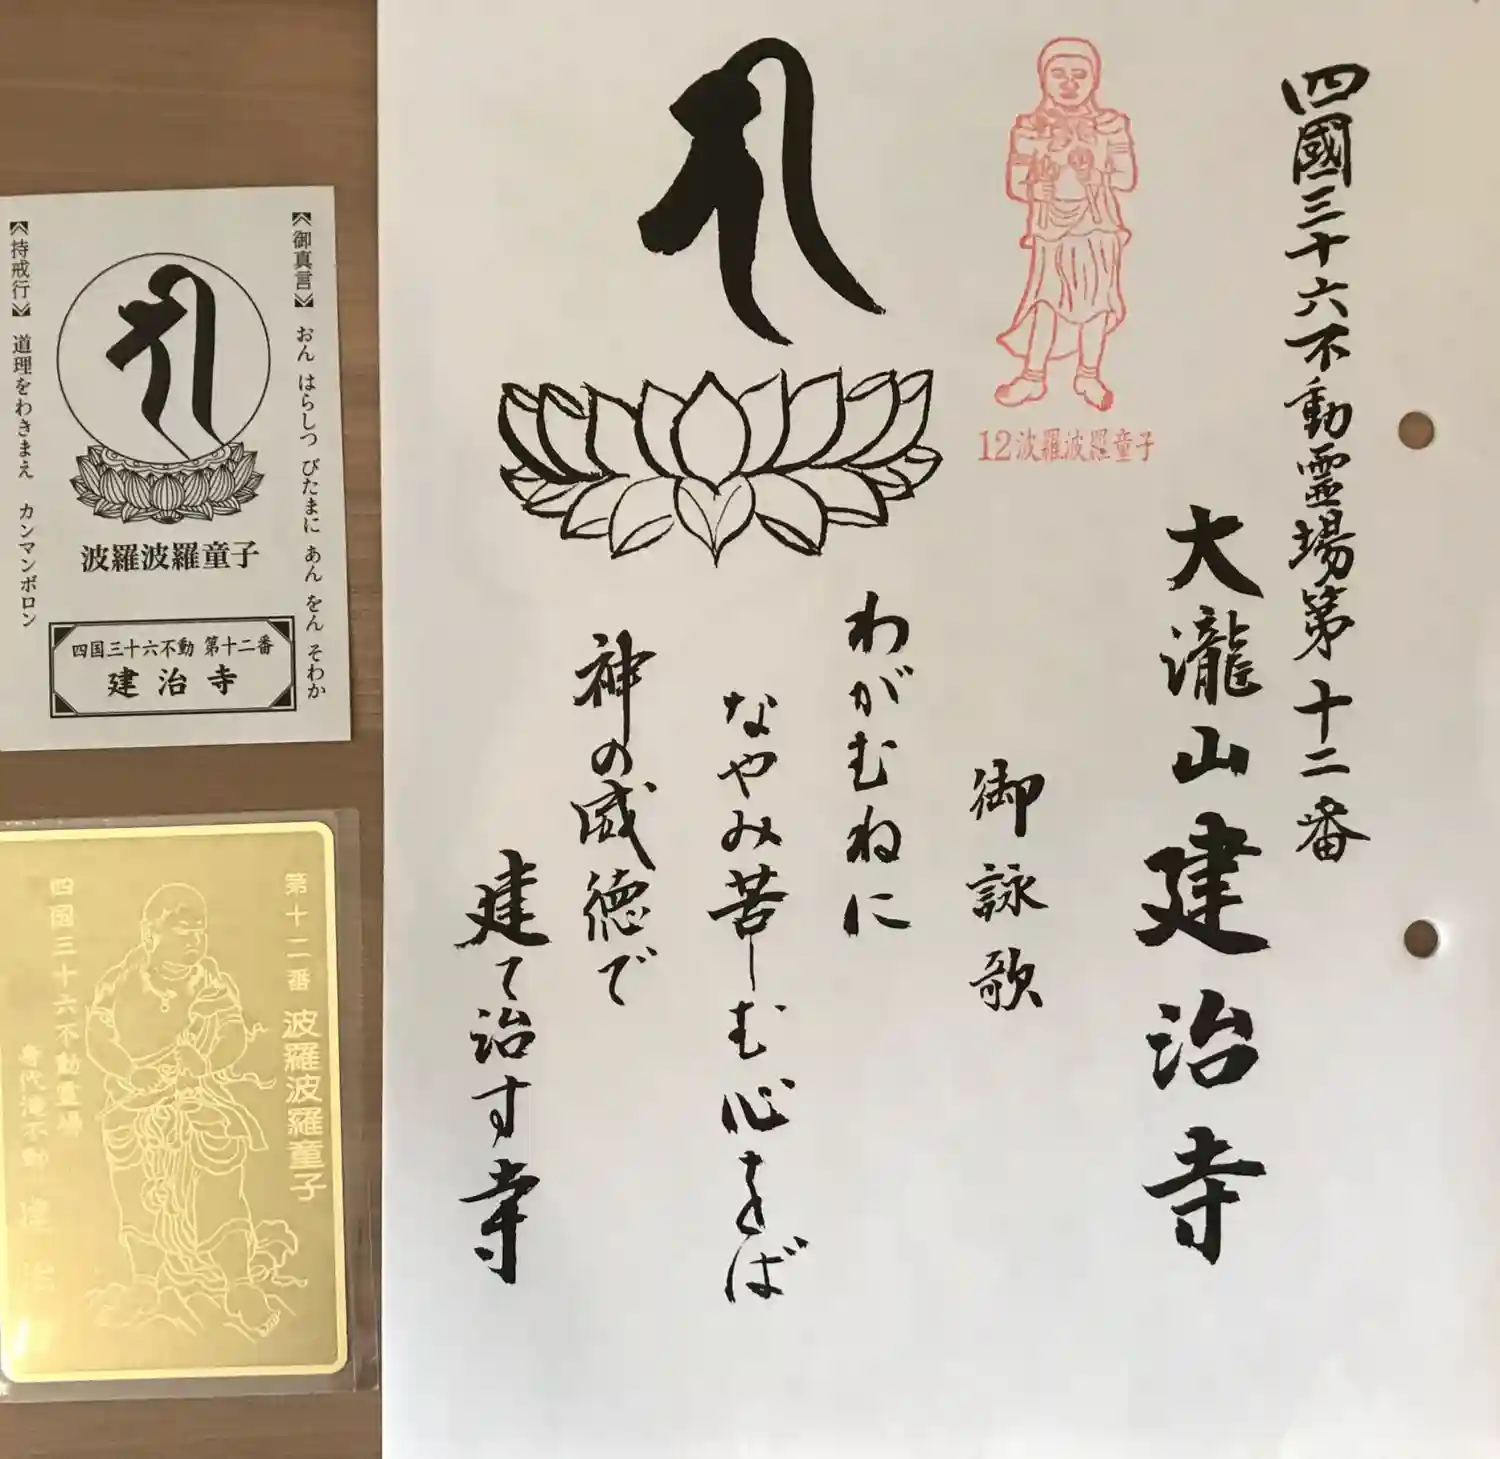 四國三十六不動霊場第十二番
大瀧山建治寺
御詠歌
わがむねに
なやみ苦しむ心をば
神の威徳で
建て治す寺
12波羅波羅童子
《御真言》 おん はらしつ びたまに あん をん そわか
波羅波羅童子
四国三十六不動 第十二番
建治寺
《持戒行》 道理をわきまえ カンマンボロン
第十二番 波羅波羅童子
四国三十六不動霊場
不動 建治